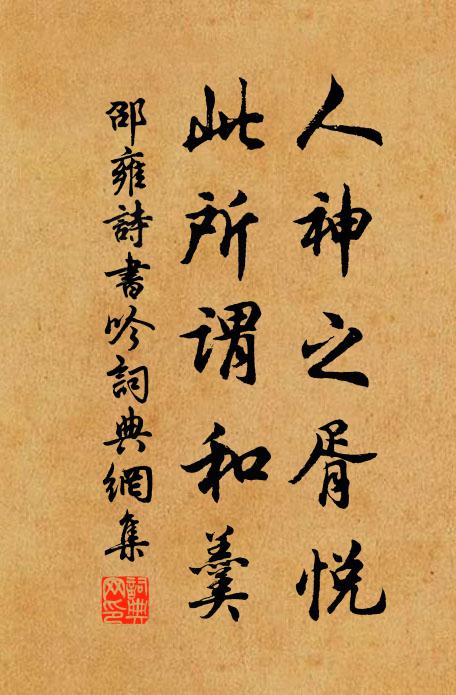 人神之胥悅
此所謂和羹
邵雍詩書吟詞典網集
詞典網印